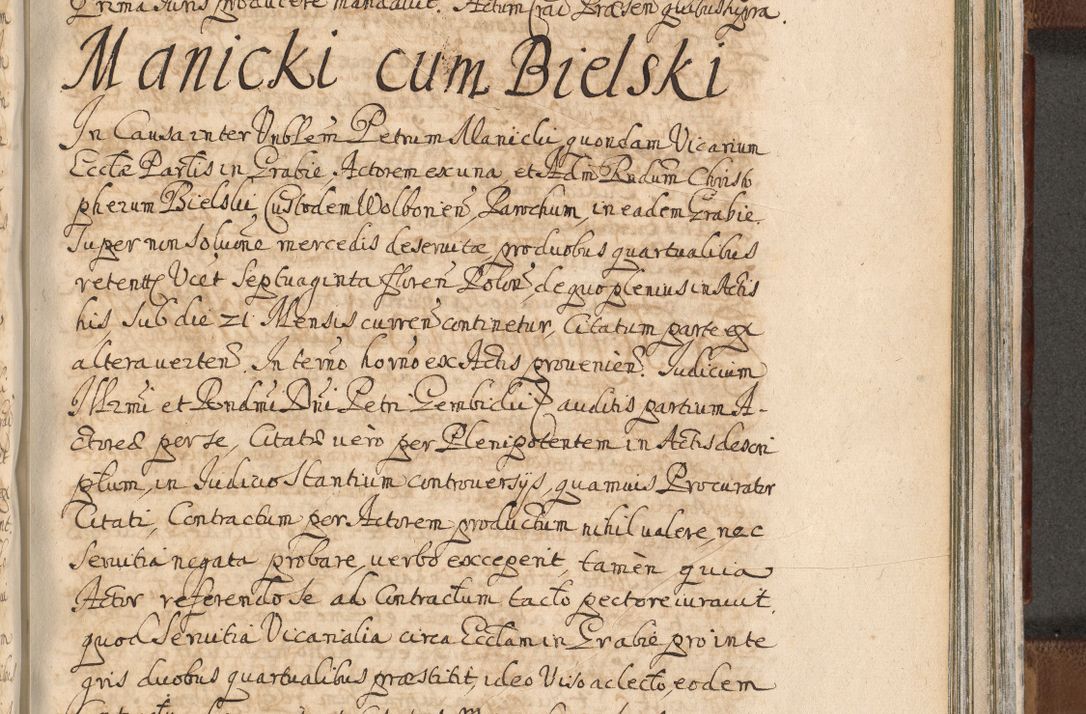 Prima Iuris producere mandavit. Actum Crac Præsen quibus supra.
Manicki cum Bielski
In Causa inter Vnblem Petrum Manicki quondam Vicarium
Ecclæ Partis in Grabie, Actorem ex una, et Adm Rndum Christo
pherum Bielski, Custodem Wolbonien, Parochum, in eadem Grabie.
Super non solutione mercedis deservitæ, pro duobus quartualibus
retentæ Vcet Septuaginta floren Polon, de quo plenius in Actis
his, sub die 21 Mensis curren continetur, Citatum parte ex
altera verten. In termo horno ex Actis provenien. Iudicium
Illrmi et Rndmi Dni Petri Gembicki auditis partium A-
ctoreæ per se, Citatæ vero per Plenipotentem in Actis descri
ptum, in Iudicio Stantium controversijs, quamvis Procurator
Citati, Contractum per Actorem productum nihil valere, nec
Servitia negata probare, verbo exceperit, tamèn quia
Actor referendo se ad Contractum tacto pectore iuravit,
quod Servitia Vicarialia circa Ecclam in Grabie pro inte
gris duobus quartualibus præstitit, ideo Viso ac lecto, eodem